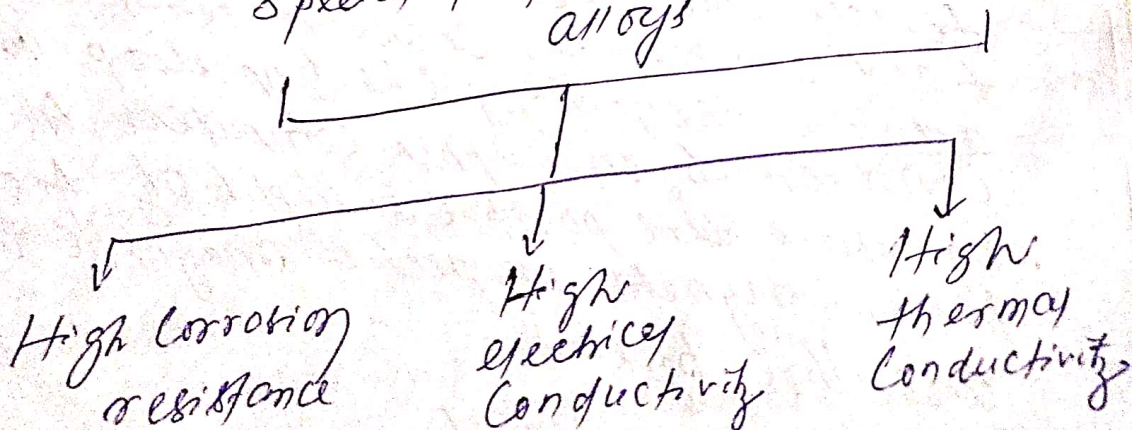 alloys
High Corrosion
resistance
High
electrical
Conductivity
High
thermal
Conductivity